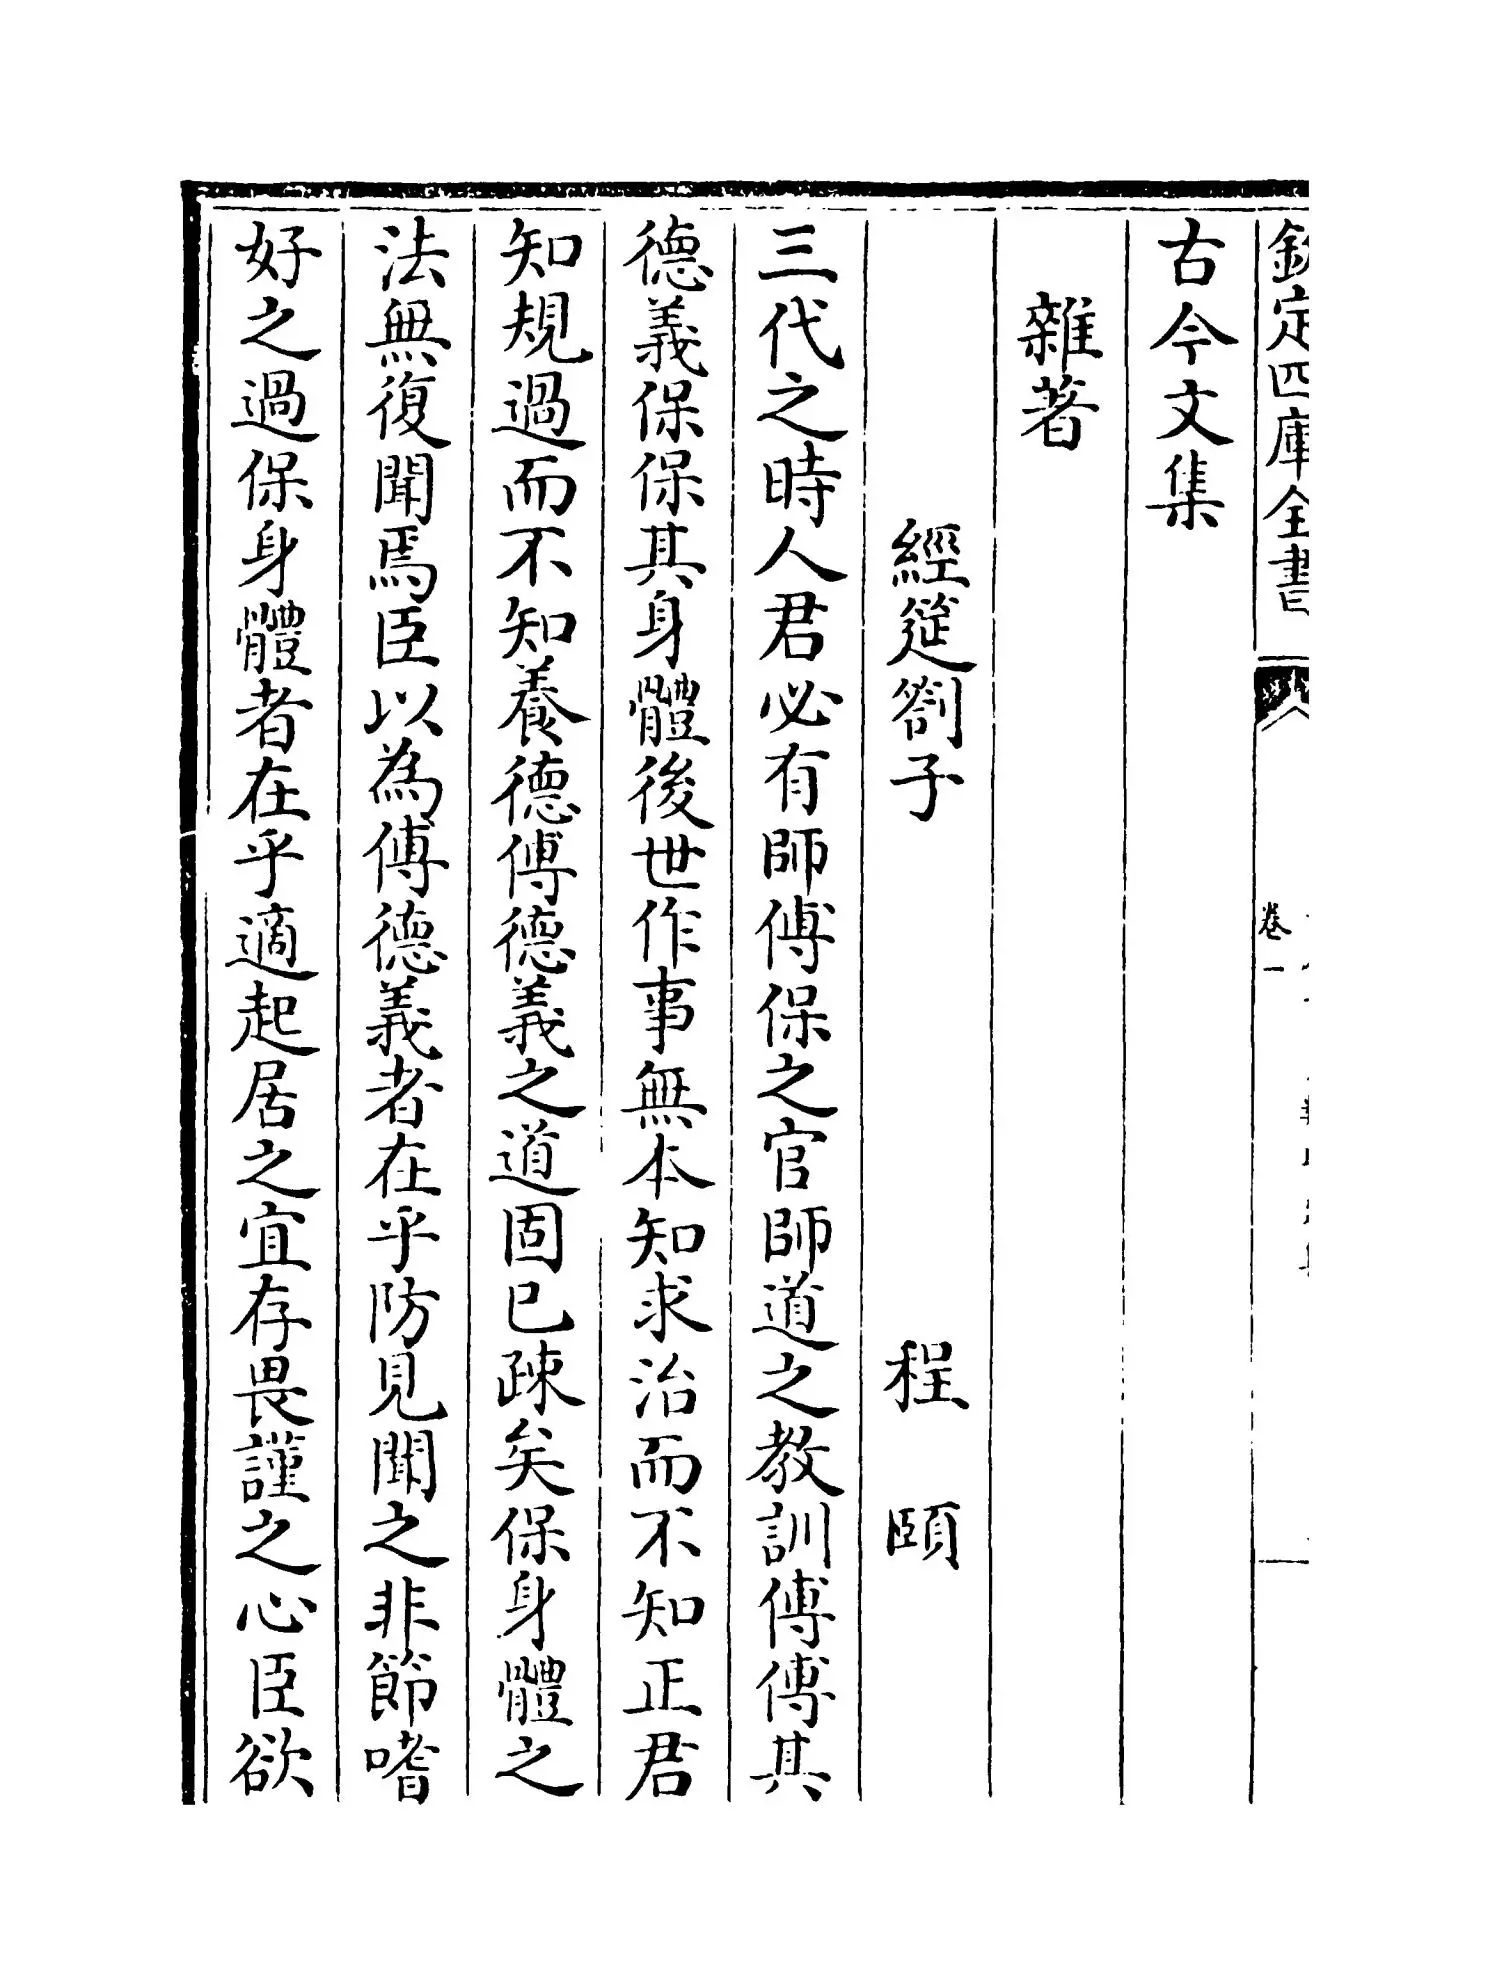 欽定四庫全書
卷一
古今文集
雜著
經筵劄子 程頤
三代之時人君必有師傅保之官師道之教訓傅傅其
德義保保其身體後世作事無本知求治而不知正君
知規過而不知養德傅德義之道固已疎矣保身體之
法無復聞焉臣以為傅德義者在乎防見聞之非節嗜
好之過保身體者在乎適起居之宜存畏謹之心臣欲